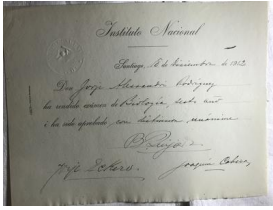 Instituto Nacional
Santiago, 6 de Diciembre de 1912
Don Jorje Alessandri Rodriguez
ha rendido exámen de Biolojía, sesto año
i ha sido aprobado con distincion unánime
Joaquin Cabezas